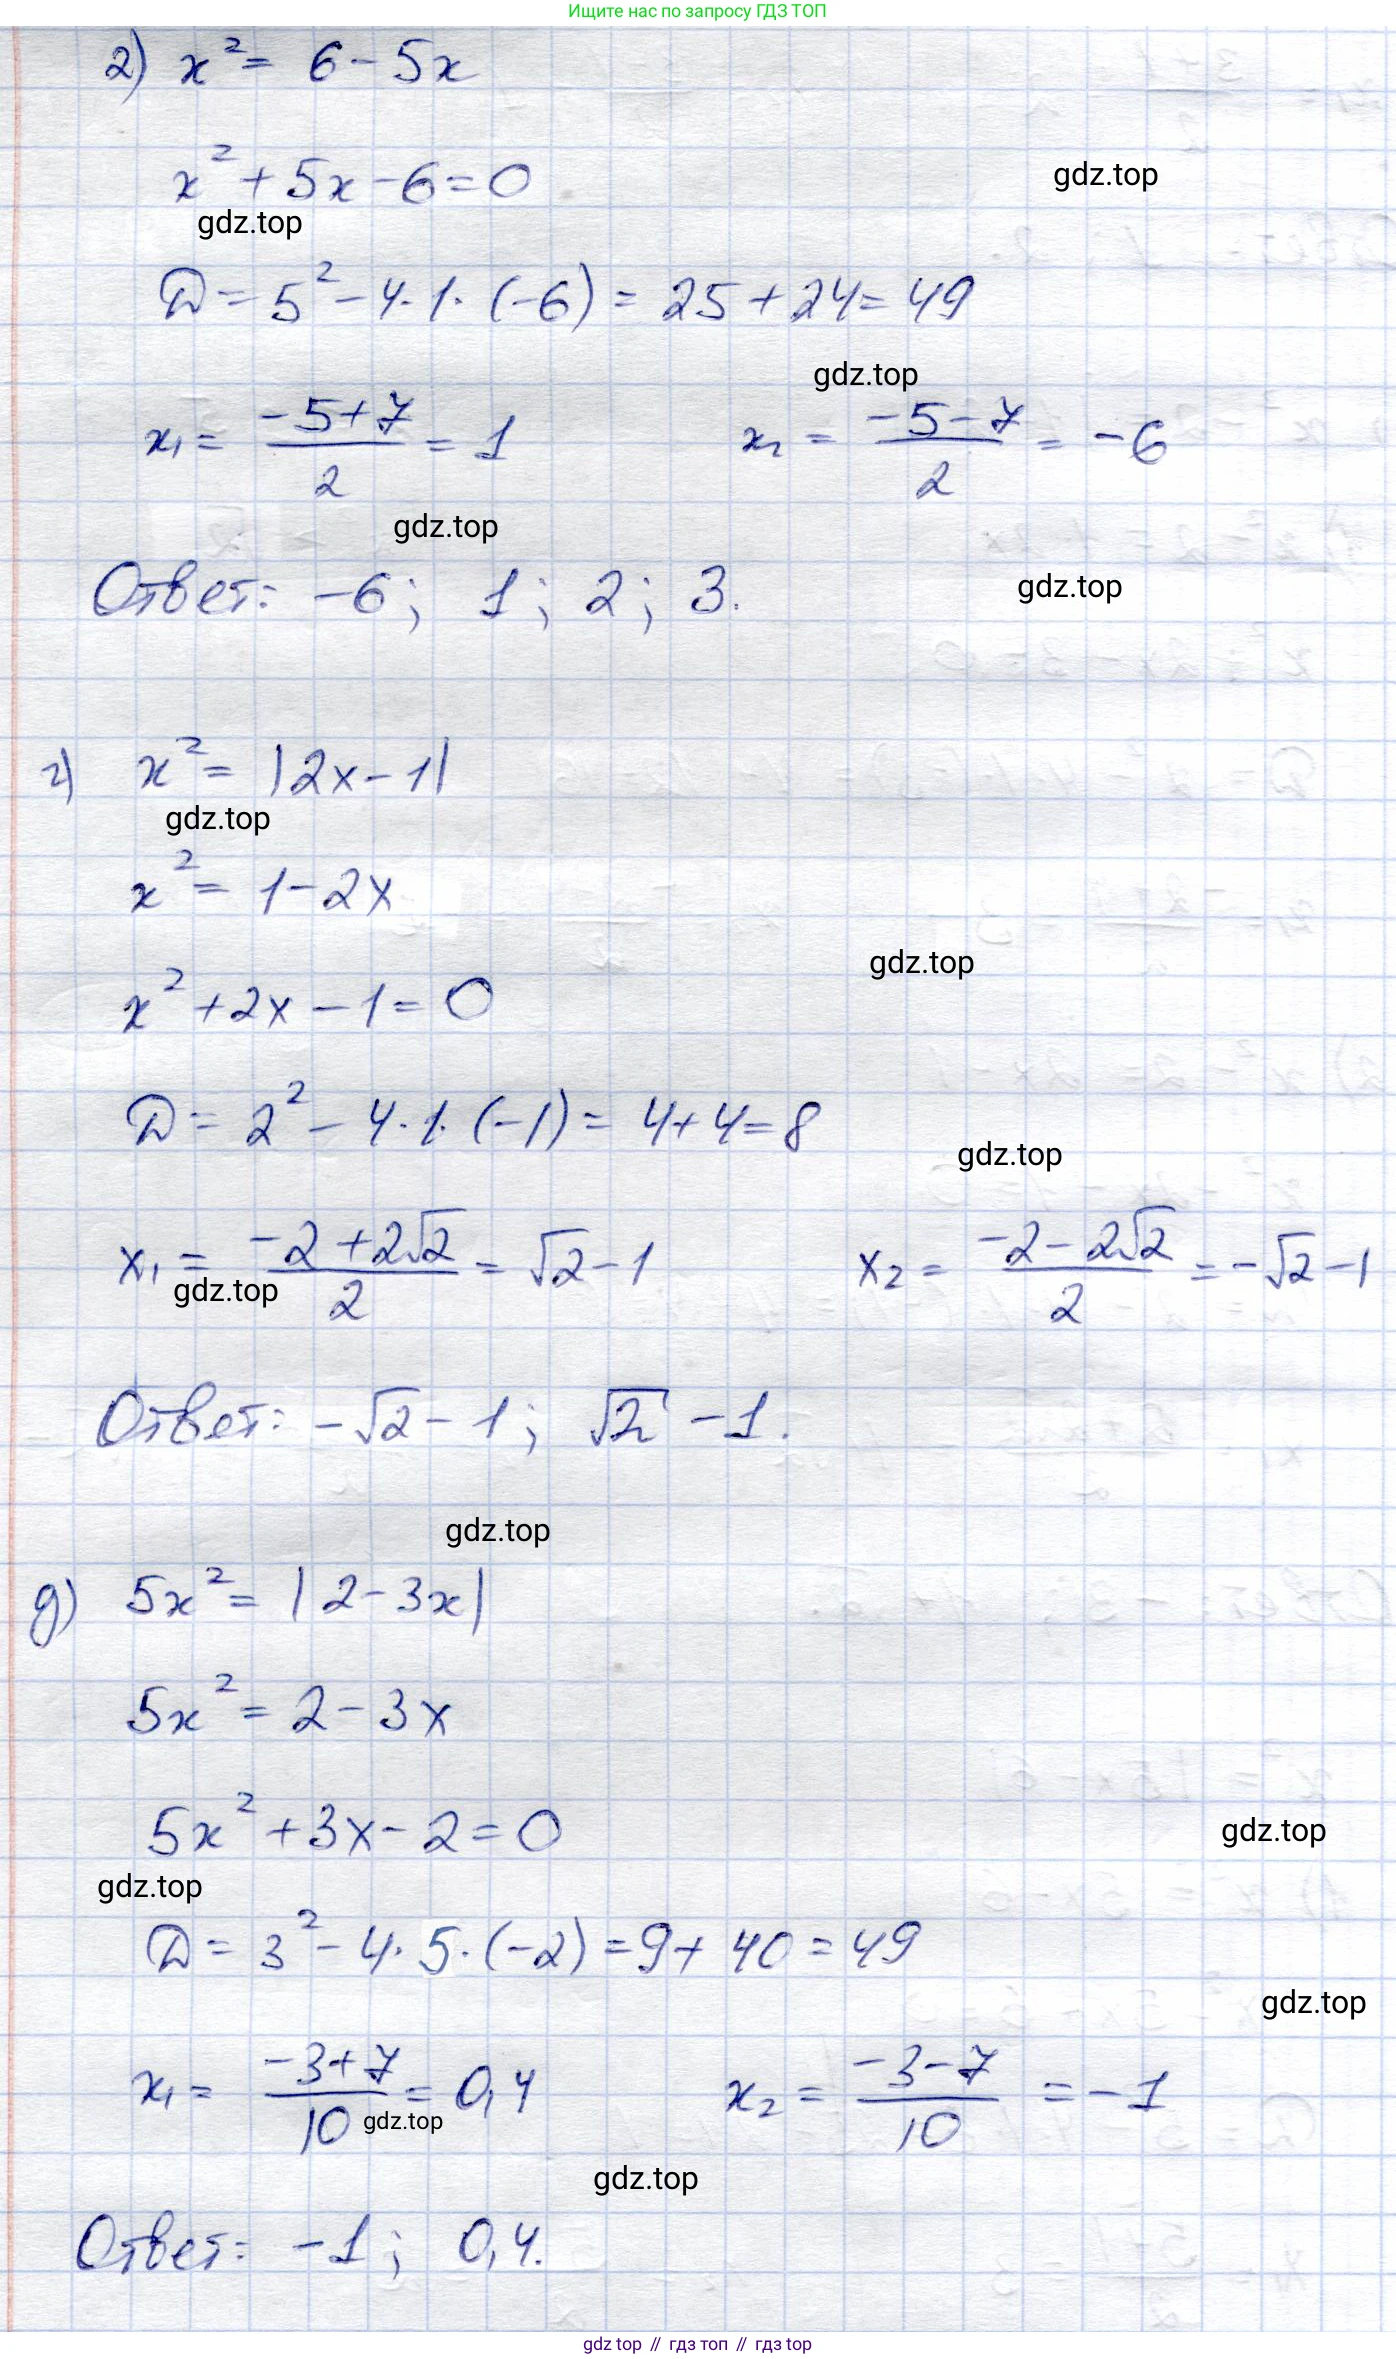 Ищите нас по запросу ГДЗ ТОП
2) x² = 6 - 5x
x² + 5x - 6 = 0
gdz.top
gdz.top
D = 5² - 4·1·(-6) = 25 + 24 = 49
gdz.top
x₁ = (-5+7)/2 = 1 x₂ = (-5-7)/2 = -6
gdz.top
Ответ: -6; 1; 2; 3.
gdz.top
г) x² = |2x - 1|
gdz.top
x² = 1 - 2x
gdz.top
x² + 2x - 1 = 0
D = 2² - 4·1·(-1) = 4 + 4 = 8
gdz.top
x₁ = (-2 + 2√2)/2 = √2 - 1 x₂ = (-2 - 2√2)/2 = -√2 - 1
gdz.top
Ответ: -√2 - 1; √2 - 1.
gdz.top
д) 5x² = |2 - 3x|
5x² = 2 - 3x
5x² + 3x - 2 = 0
gdz.top
gdz.top
D = 3² - 4·5·(-2) = 9 + 40 = 49
gdz.top
x₁ = (-3+7)/10 = 0,4 x₂ = (-3-7)/10 = -1
gdz.top
gdz.top
Ответ: -1; 0,4.
gdz top // гдз топ // гдз top